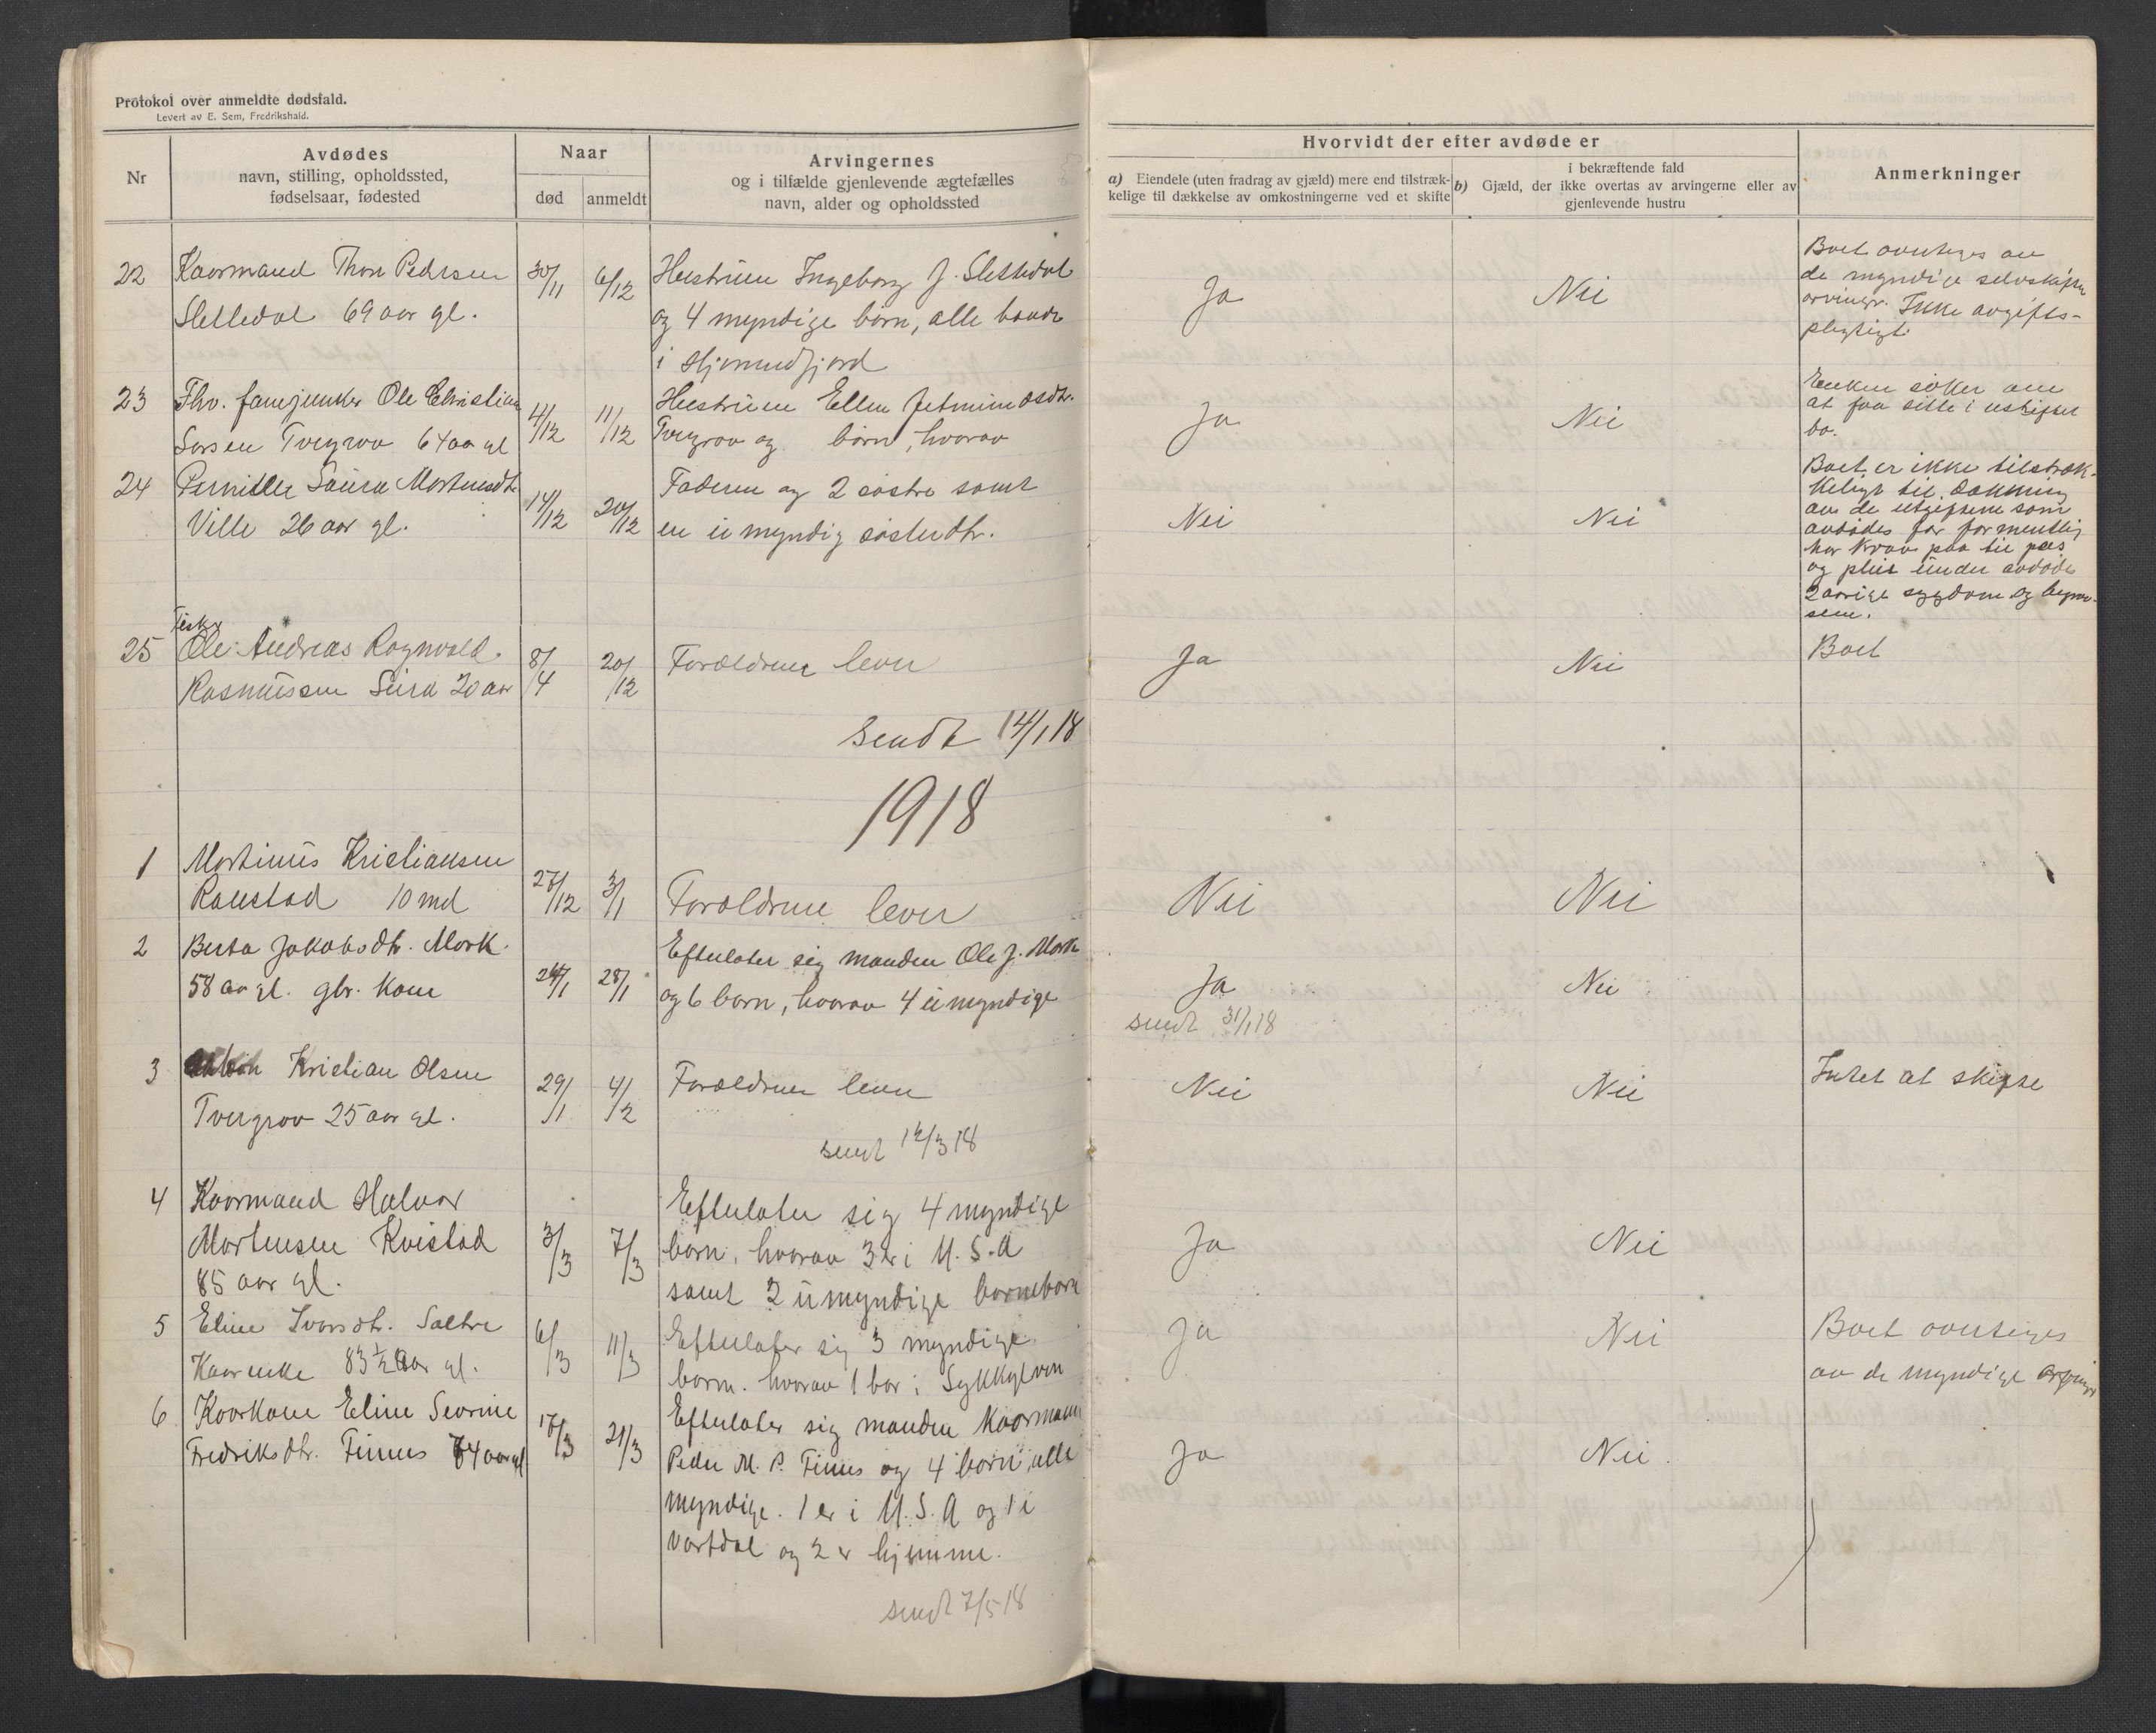 Protokol over anmeldte dødsfald.
Levert av E. Sem, Fredrikshald.
Nr
Avdødes
navn, stilling, opholdssted,
fødselsaar, fødested
Naar
død
anmeldt
Arvingernes
og i tilfælde gjenlevende ægtefælles
navn, alder og opholdssted
Hvorvidt der efter avdøde er
a) Eiendele (uten fradrag av gjæld) mere end tilstræk-
kelige til dækkelse av omkostningerne ved et skifte
i bekræftende fald
b) Gjæld, der ikke overtas av arvingerne eller av
gjenlevende hustru
Anmerkninger
22 Kaarmand Thore Pedersen 30/11 6/12 Hustruen Ingeborg J. Slettedal
Slettedal 69 aar gl. og 4 myndige børn, alle boende
i Hjørundfjord
Ja Nei
Boet overtages av
de myndige selvskiftende
arvinger. Ikke avgifts-
pligtigt
23 Fhv. fanejunker Ole Christian 4/12 11/12 Hustruen Ellen Jetmundsdtr.
Larsen Tvergrov 64 aar gl Tvergrov og børn, hvorav
Ja Nei
Enken søker om
at faa sitte i uskiftet
bo.
24 Pernille Laura Mortensdtr. 14/12 20/12 Faderen og 2 søstre samt
Ville 26 aar gl. en umyndig søsterdtr.
Nei Nei
Boet er ikke tilstræk-
keligt til dækning
av de utgiftene som
avdødes far formentlig
har krav paa til pas
og pleie under avdødes
2 aarige sygdom og begrav-
else.
25 Fisker
Ole Andreas Ragnvald 8/4 20/12 Forældrene lever
Rasmussen 20 aar
Ja Nei Boet
Sendt 14/1 18
1918
1 Martinus Kristiansen
Ramstad 10 md 27/12 3/1 Forældrene lever
Nei Nei
2 Berta Jakobsdtr. Mork. 24/1 28/1 Efterlater sig manden Ole J. Mork
58 aar gl. gbr. kone og 6 børn, hvorav 4 umyndige
Ja Nei
sendt 31/1 18
3 Anton Kristian Olsen 29/1 4/2 Forældrene lever
Tvergrov 25 aar gl.
Nei Nei Intet at skifte
sendt 12/3 18
4 Kaarmand Halvor Efterlater sig 4 myndige
Mortensen Kvistad 3/3 7/3 børn, hvorav 3 er i U.S.A
85 aar gl. samt 2 umyndige barnebarn
Ja Nei
5 Eline Ivarsdtr. Sætre 6/3 11/3 Efterlater sig 3 myndige
Kaarenke 83 1/2 aar gl. børn. hvorav 1 bor i Sykkylven
Ja Nei
Boet overtages
av de myndige arvinger
6 Kaarkone Eline Severine 17/3 21/3 Efterlater sig manden kaarmann
Fredriksdtr. Finnes 74 aar gl Peder M. P. Finnes og 4 børn, alle
myndige. 1 er i U.S.A og 1 i
Vartdal og 2 er hjemme.
Ja Nei
sendt 7/5 18